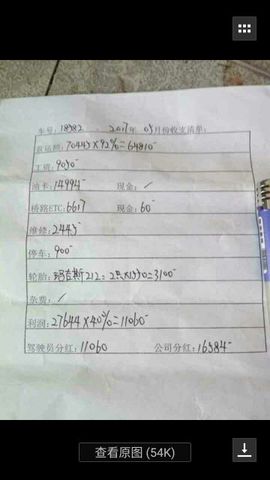 车号: 2017年 05月份收支清单:
70445×92%=64810-
工资: 9050-
油卡: 14994- 现金: /
桥路ETC: 6617 现金: 60-
维修: 2445-
停车: 900-
轮胎: 212: 2只×1550=3100-
杂费: /
利润: 27644×40%=11060-
驾驶员分红: 11060 公司分红: 16584-
查看原图 (54K)